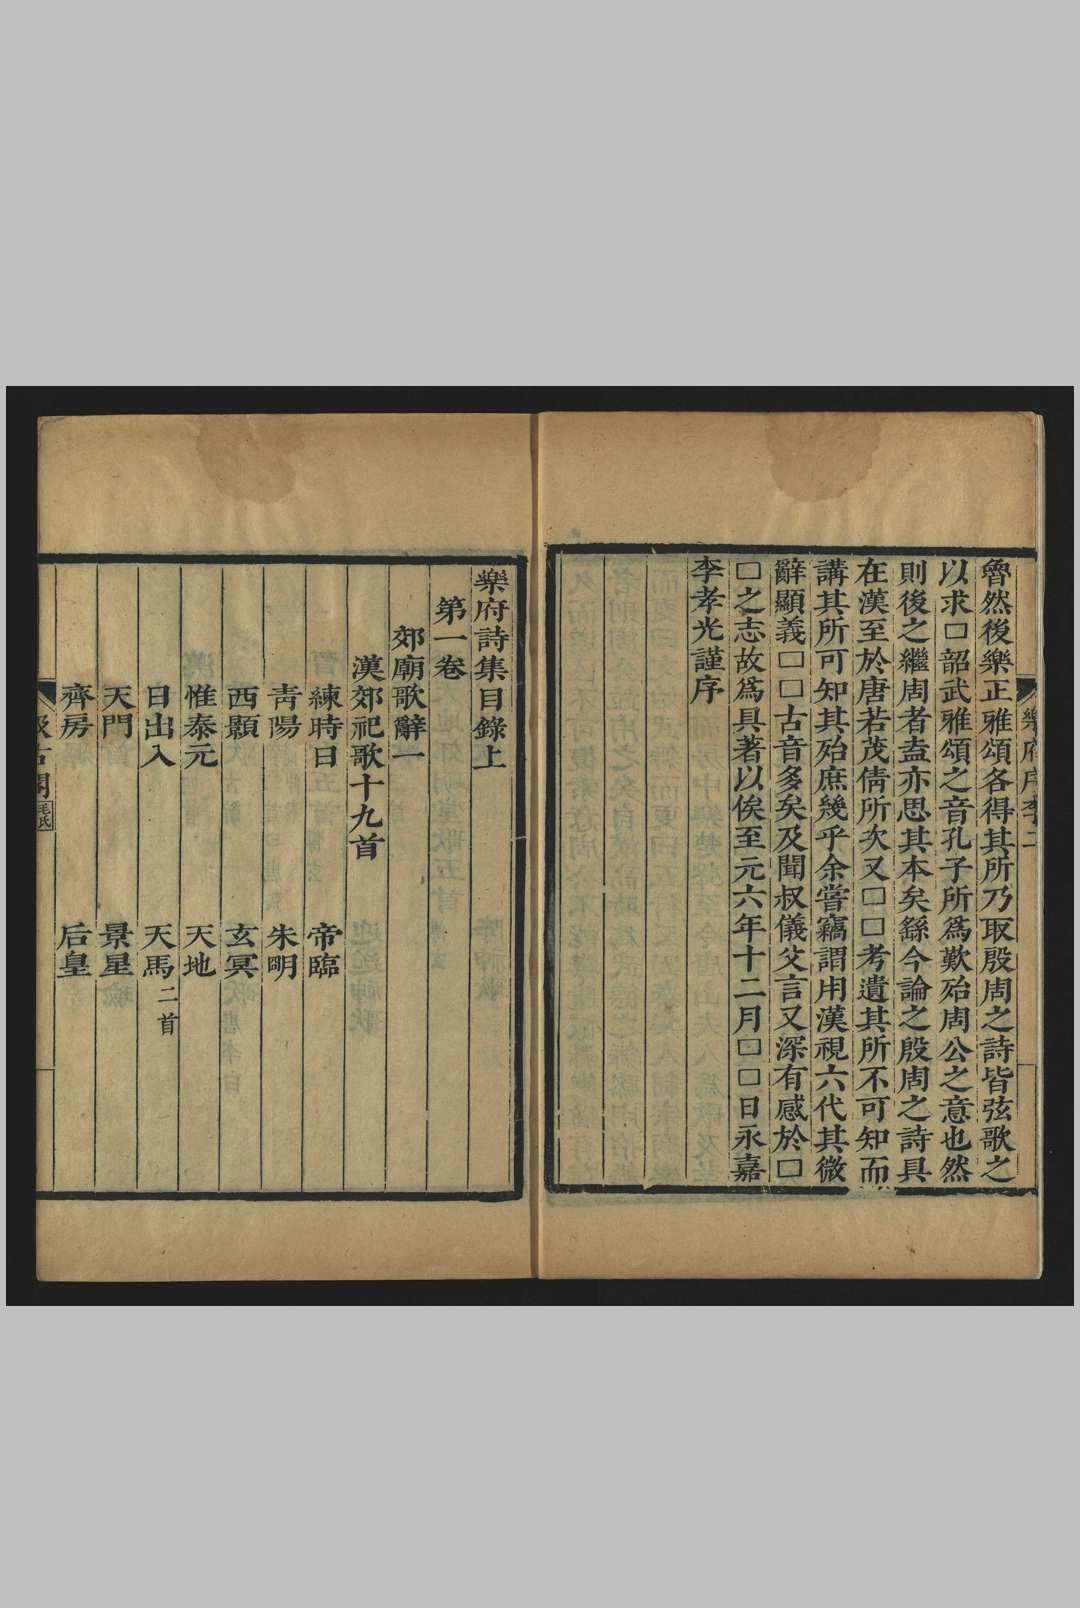 樂府序李二
魯然後樂正雅頌各得其所乃取殷周之詩皆弦歌之
以求□韶武雅頌之音孔子所爲歎殆周公之意也然
則後之繼周者盍亦思其本矣繇今論之殷周之詩具
在漢至於唐若茂倩所次又□□考遺其所不可知而
講其所可知其殆庶幾乎余嘗竊謂用漢視六代其微
辭顯義□□古音多矣及聞叔儀父言又深有感於□
□之志故爲具著以俟至元六年十二月□□日永嘉
李孝光謹序
樂府詩集目錄上
第一卷
郊廟歌辭一
漢郊祀歌十九首
練時日 帝臨
靑陽 朱明
西顥 玄冥
惟泰元 天地
日出入 天馬二首
天門 景星
齊房 后皇
汲古閣 毛氏